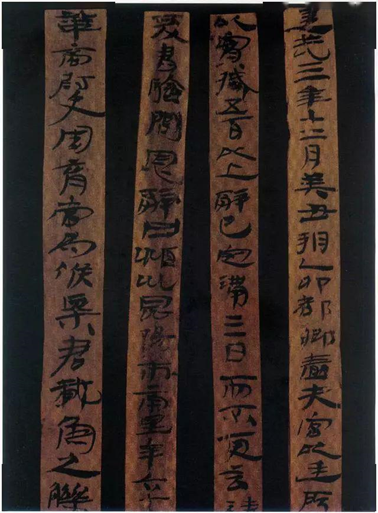 建武三年十二月癸丑朔乙卯都鄉嗇夫宮以廷所
以實臧五百以上辭已定滿三日而不更言請
爰書驗問恩辭曰潁川昆陽市南里年六十
華商尉史周育當為候粟君載魚之觻